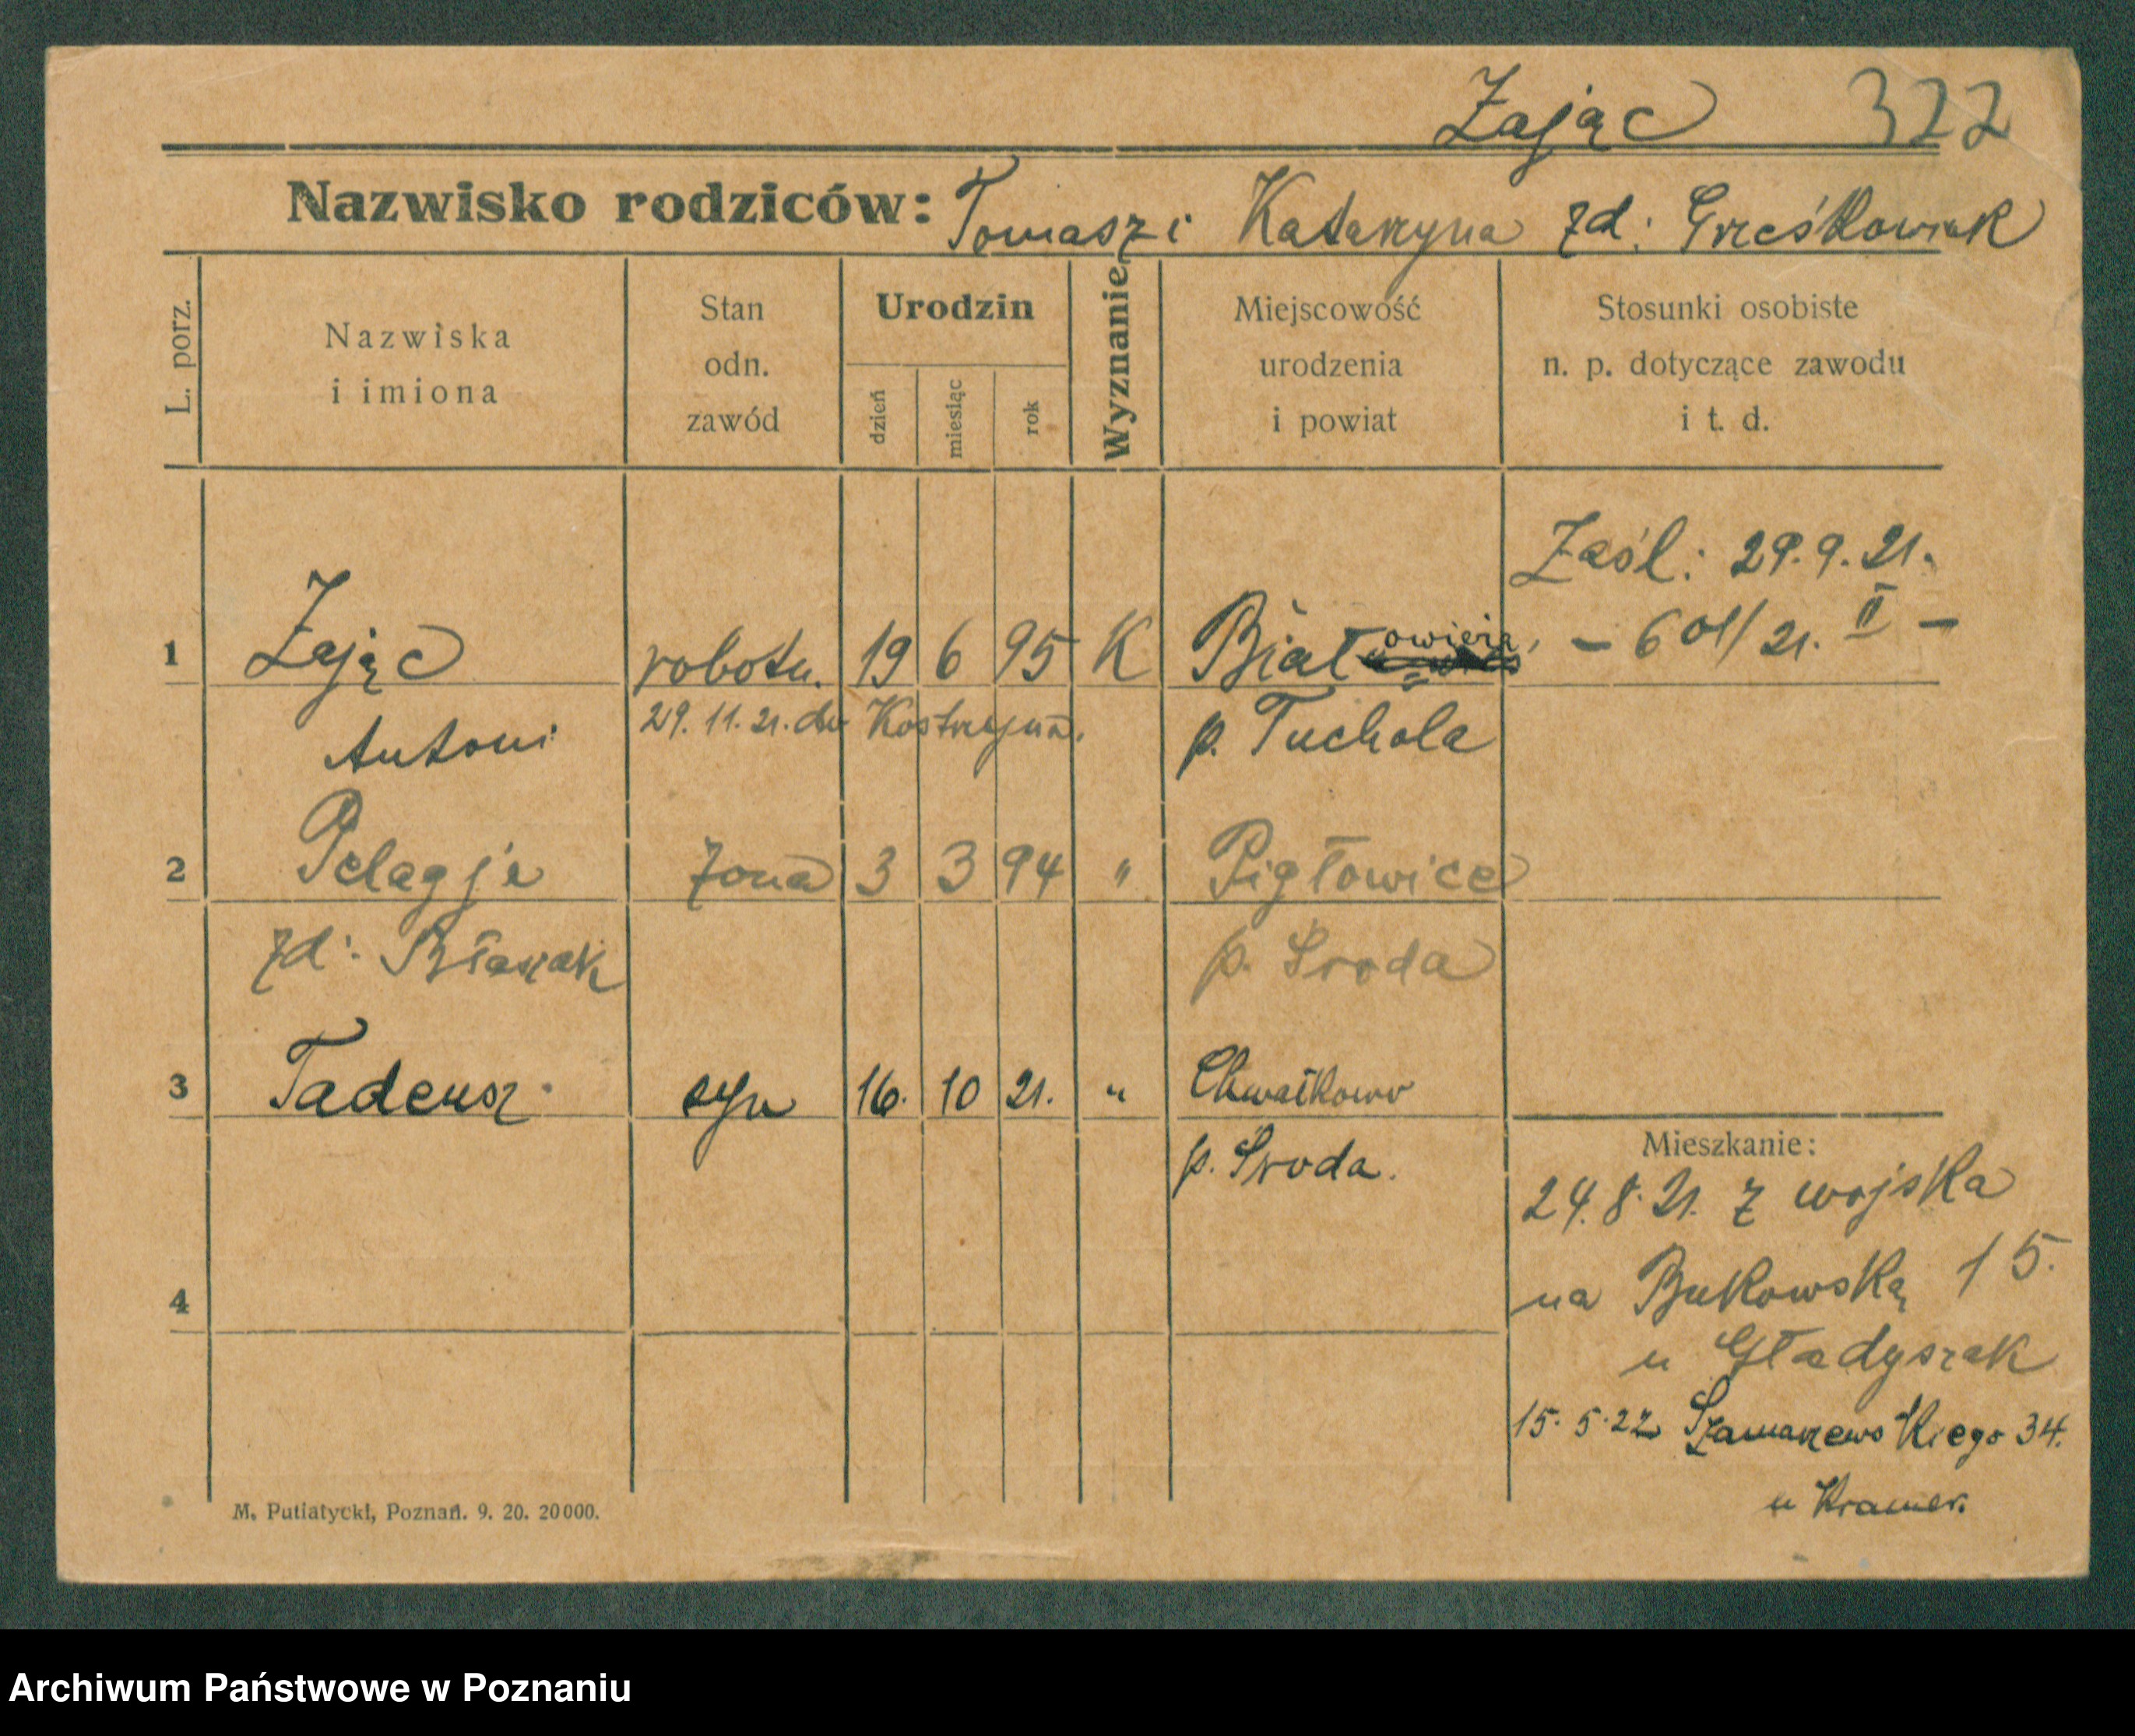 Zając 322
Nazwisko rodziców: Tomasz i Katarzyna zd: Grześkowiak
L. porz.
Nazwiska
i imiona
Stan
odn.
zawód
Urodzin
dzień
miesiąc
rok
Wyznanie
Miejscowość
urodzenia
i powiat
Stosunki osobiste
n. p. dotyczące zawodu
i t. d.
Zaśl: 29.9.21.
1 Zając robotn. 19 6 95 K Białowieża - 601/21. II -
Antoni 29.11.21. do Kostrzyna. p. Tuchola
2 Pelagja żona 3 3 94 " Pigłowice
zd: Błaszak p. Środa
3 Tadeusz syn 16. 10 21. " Chwałkowo
p. Środa.
Mieszkanie:
24.8.21. z wojska
na Bukowską 15.
u Gładyszak
15.5.22 Szamarzewskiego 34.
u Kramer.
4
M. Putiatycki, Poznań. 9. 20. 20000.
Archiwum Państwowe w Poznaniu